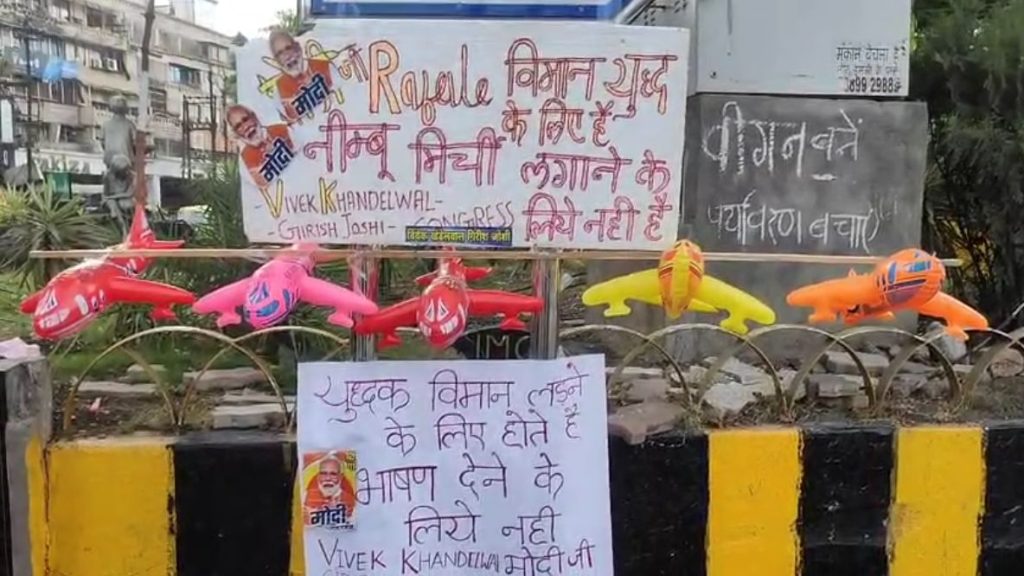 मोदी
मोदी
जी Rafale विमान युद्ध
के लिए है
नीम्बू मिर्ची लगाने के
लिये नही है
-VIVEK KHANDELWAL-
-GIRISH JOSHI-
CONGRESS
विवेक खंडेलवाल गिरीश जोशी
मकान बेचना है
वीगन बनें
पर्यावरण बचाएं
IMC
युद्धक विमान लड़ने
के लिए होते है
भाषण देने के
लिये नही
मोदी
VIVEK KHANDELWAL मोदी जी